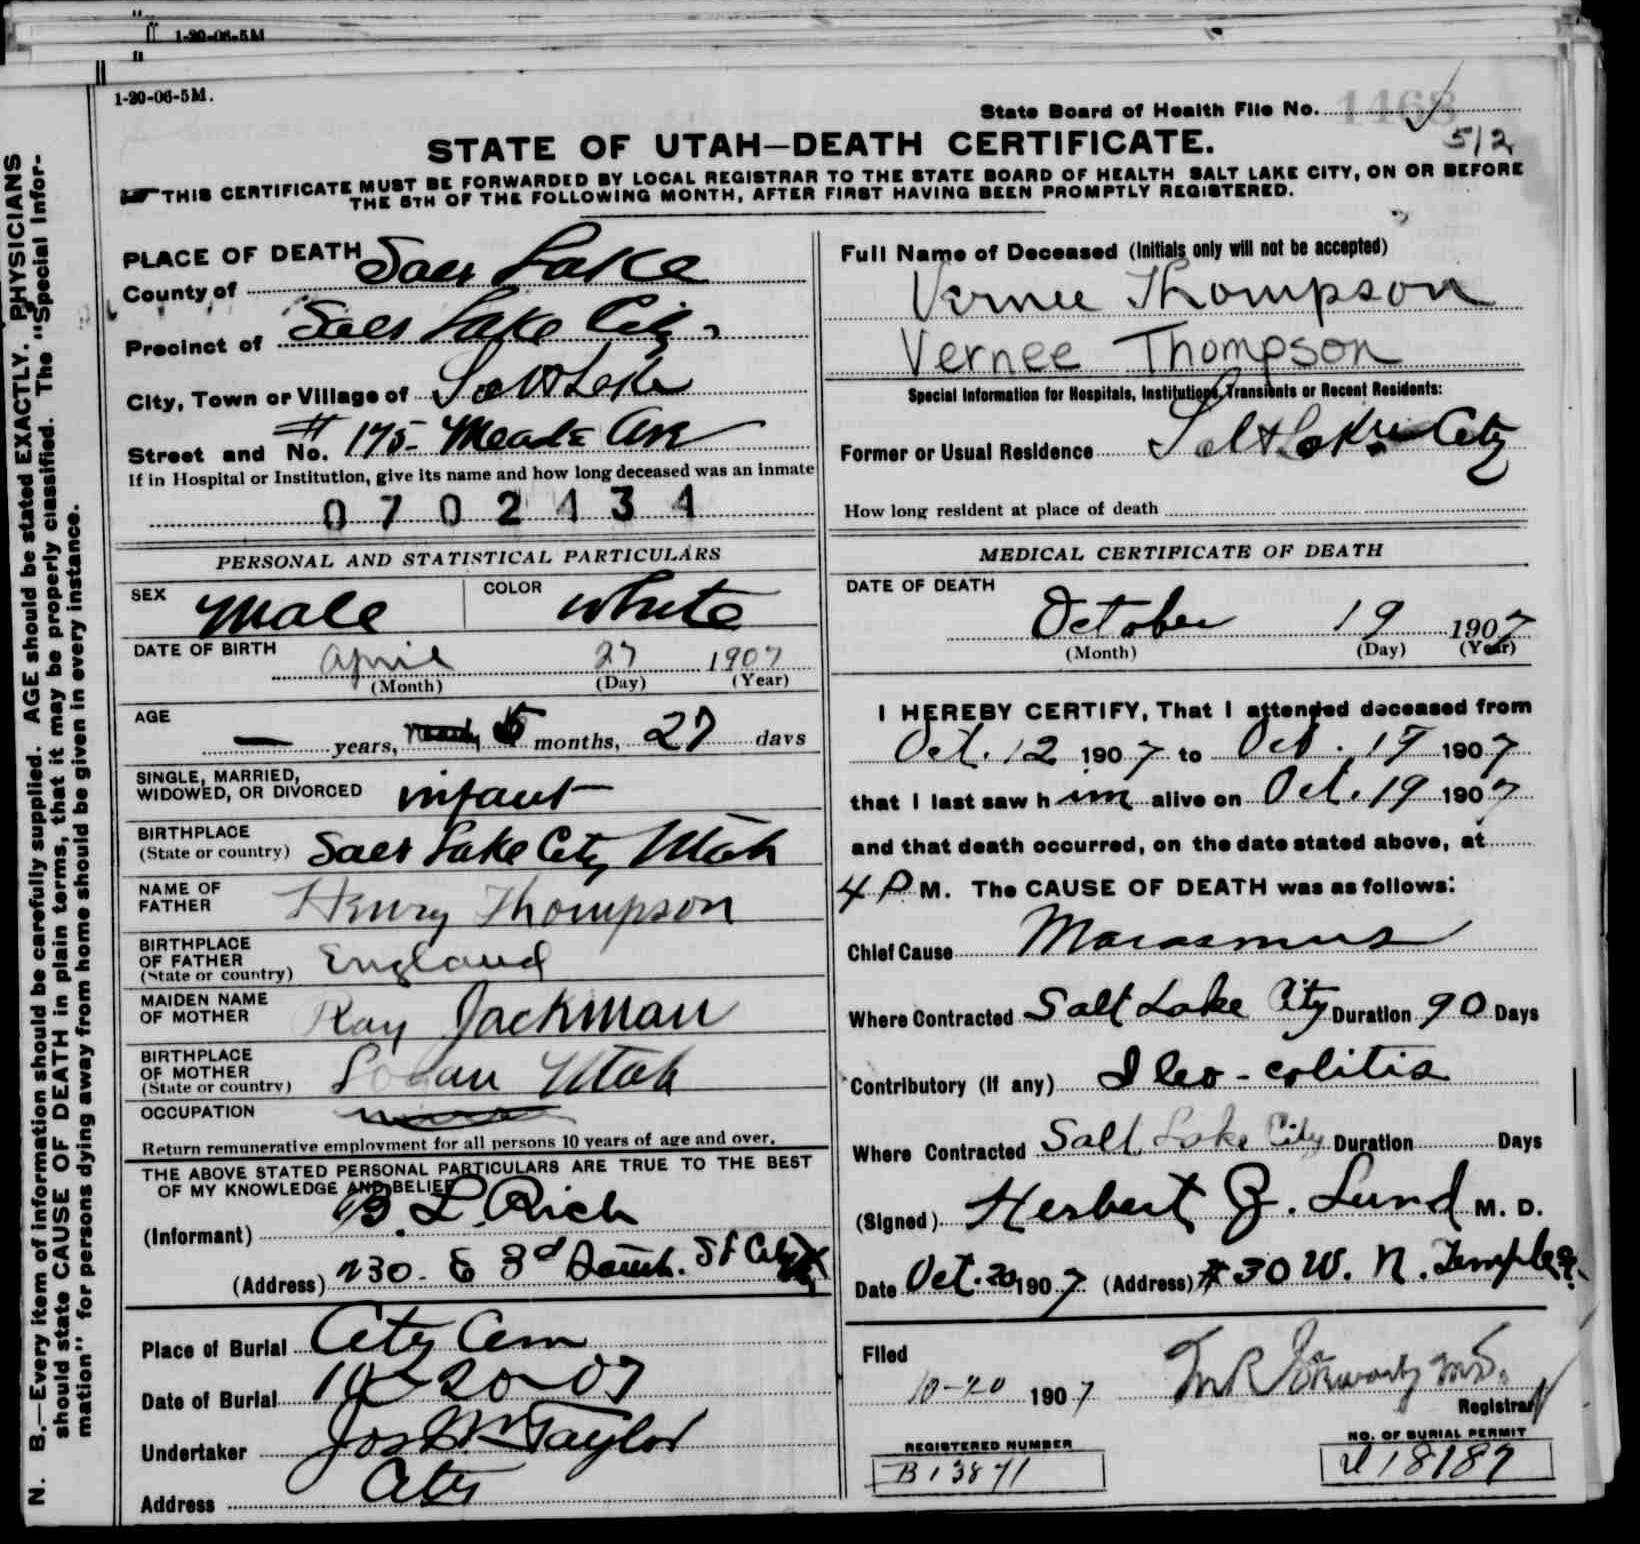 1-20-06-5M
1-20-06-5M.
State Board of Health File No. 1468
512
STATE OF UTAH—DEATH CERTIFICATE.
THIS CERTIFICATE MUST BE FORWARDED BY LOCAL REGISTRAR TO THE STATE BOARD OF HEALTH SALT LAKE CITY, ON OR BEFORE
THE 5TH OF THE FOLLOWING MONTH, AFTER FIRST HAVING BEEN PROMPTLY REGISTERED.
N. B.—Every item of information should be carefully supplied. AGE should be stated EXACTLY. PHYSICIANS
should state CAUSE OF DEATH in plain terms, that it may be properly classified. The "Special Infor-
mation" for persons dying away from home should be given in every instance.
PLACE OF DEATH
County of Salt Lake
Precinct of Salt Lake City
City, Town or Village of Salt Lake
Street and No. # 175 Meade Ave
If in Hospital or Institution, give its name and how long deceased was an inmate
0702131
PERSONAL AND STATISTICAL PARTICULARS
SEX Male COLOR White
DATE OF BIRTH April 27 1907
(Month) (Day) (Year)
AGE — years, 5 months, 27 days
SINGLE, MARRIED,
WIDOWED, OR DIVORCED infant
BIRTHPLACE
(State or country) Salt Lake City Utah
NAME OF
FATHER Henry Thompson
BIRTHPLACE
OF FATHER England
(State or country)
MAIDEN NAME
OF MOTHER Ray Jackman
BIRTHPLACE
OF MOTHER Logan Utah
(State or country)
OCCUPATION
Return remunerative employment for all persons 10 years of age and over.
THE ABOVE STATED PERSONAL PARTICULARS ARE TRUE TO THE BEST
OF MY KNOWLEDGE AND BELIEF
(Informant) B. L. Rich
(Address) 230 E 3d South St City
Place of Burial City Cem
Date of Burial 10-20-07
Undertaker Jos Wm Taylor
Address City
Full Name of Deceased (Initials only will not be accepted)
Vernee Thompson
Vernee Thompson
Special Information for Hospitals, Institutions, Transients or Recent Residents:
Former or Usual Residence Salt Lake City
How long resident at place of death
MEDICAL CERTIFICATE OF DEATH
DATE OF DEATH
October 19 1907
(Month) (Day) (Year)
I HEREBY CERTIFY, That I attended deceased from
Oct. 12 1907 to Oct. 19 1907
that I last saw him alive on Oct. 19 1907
and that death occurred, on the date stated above, at
4 P M. The CAUSE OF DEATH was as follows:
Chief Cause Marasmus
Where Contracted Salt Lake City Duration 90 Days
Contributory (if any) Ileo-colitis
Where Contracted Salt Lake City Duration Days
(Signed) Herbert Z. Lund M. D.
Date Oct. 20 1907 (Address) # 30 W. N. Temple
Filed
10-20 1907
Registrar
REGISTERED NUMBER
B13871
NO. OF BURIAL PERMIT
18187